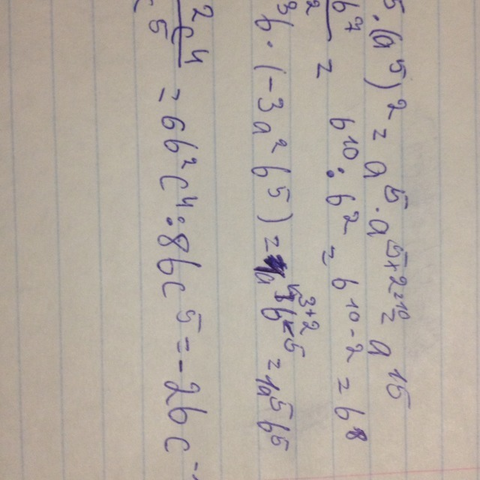 5·(a⁵)² = a⁵·a⁵⁺²⁼¹⁰ = a¹⁵
b⁷/² = b¹⁰ : b² = b¹⁰⁻² = b⁸
³b·(-3a²b⁵) = a³⁺²b⁵ = 1a⁵b⁵
²c⁴/c⁵ = 6b²c⁴ : 8bc⁵ = -2bc⁻